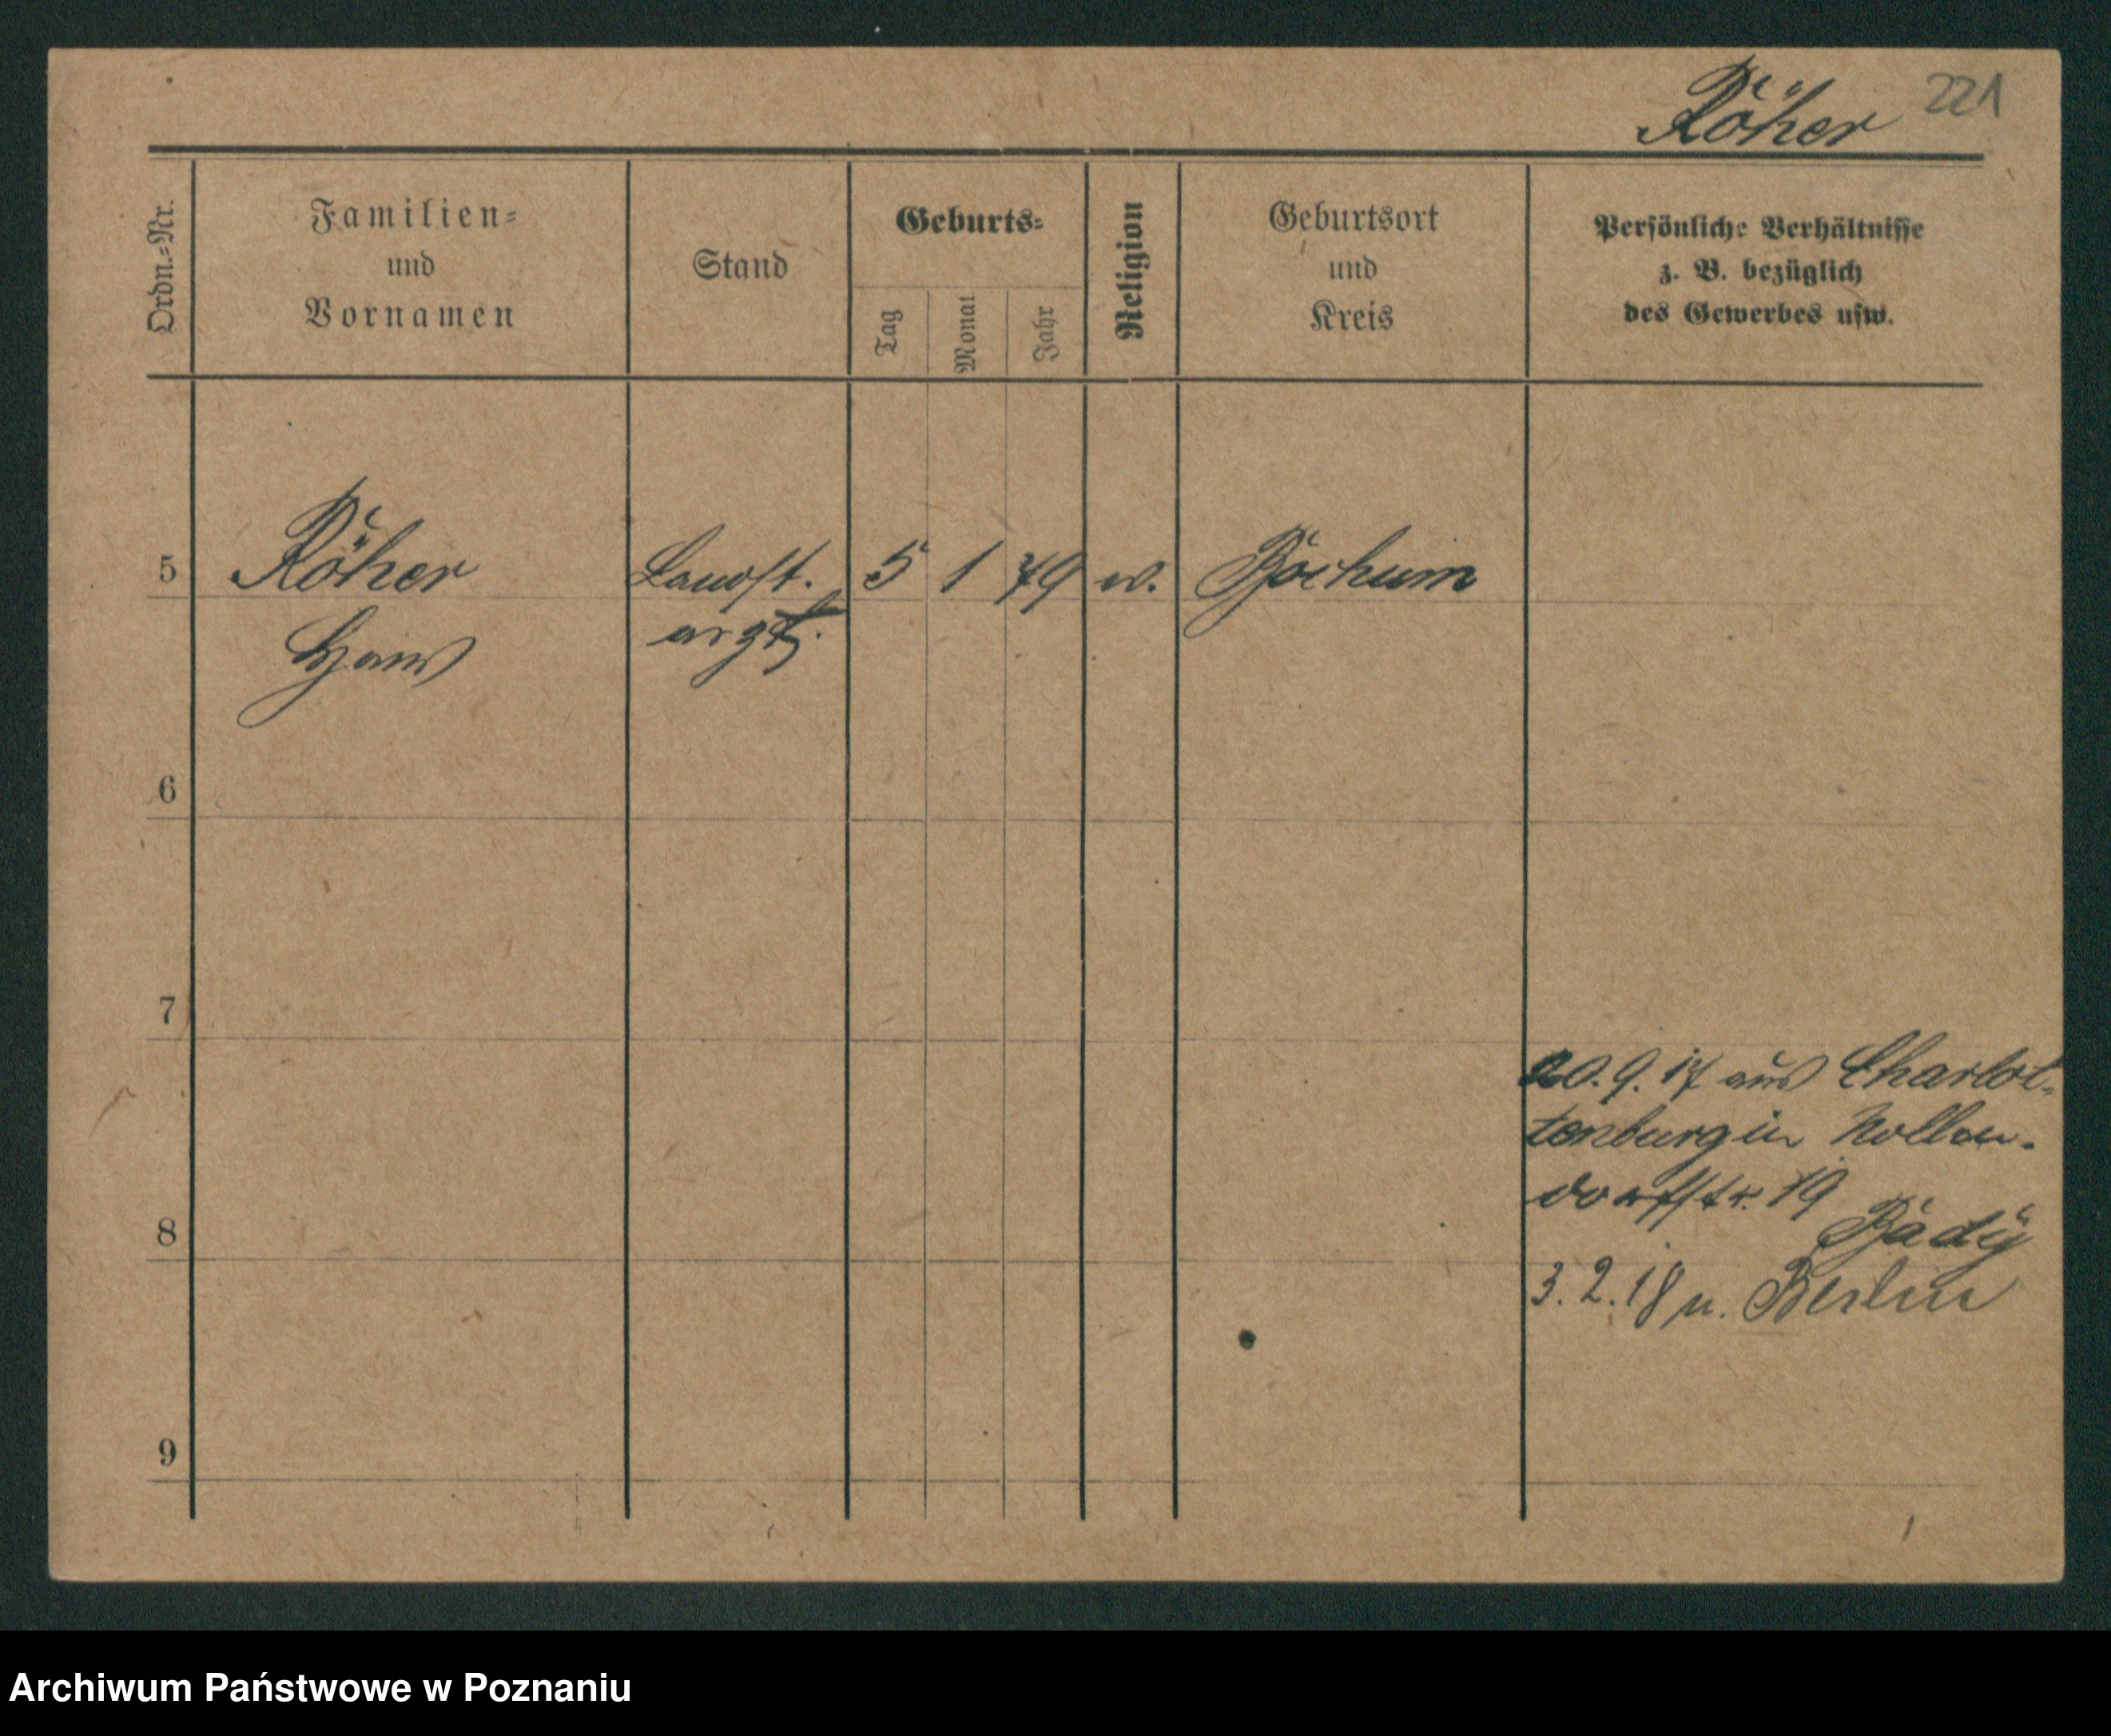 Röher 221
Ordn.-Nr.
Familien-
und
Vornamen
Stand
Geburts-
Tag
Monat
Jahr
Religion
Geburtsort
und
Kreis
Persönliche Verhältnisse
z. B. bezüglich
des Gewerbes usw.
5 Röher Landst. 5 1 79 ev. Bochum
Hans arzt.
6
7
20.9.17 aus Charlot-
tenburg in Nollen-
dorfstr. 19
8
3.2.18 n. Berlin
9
Archiwum Państwowe w Poznaniu